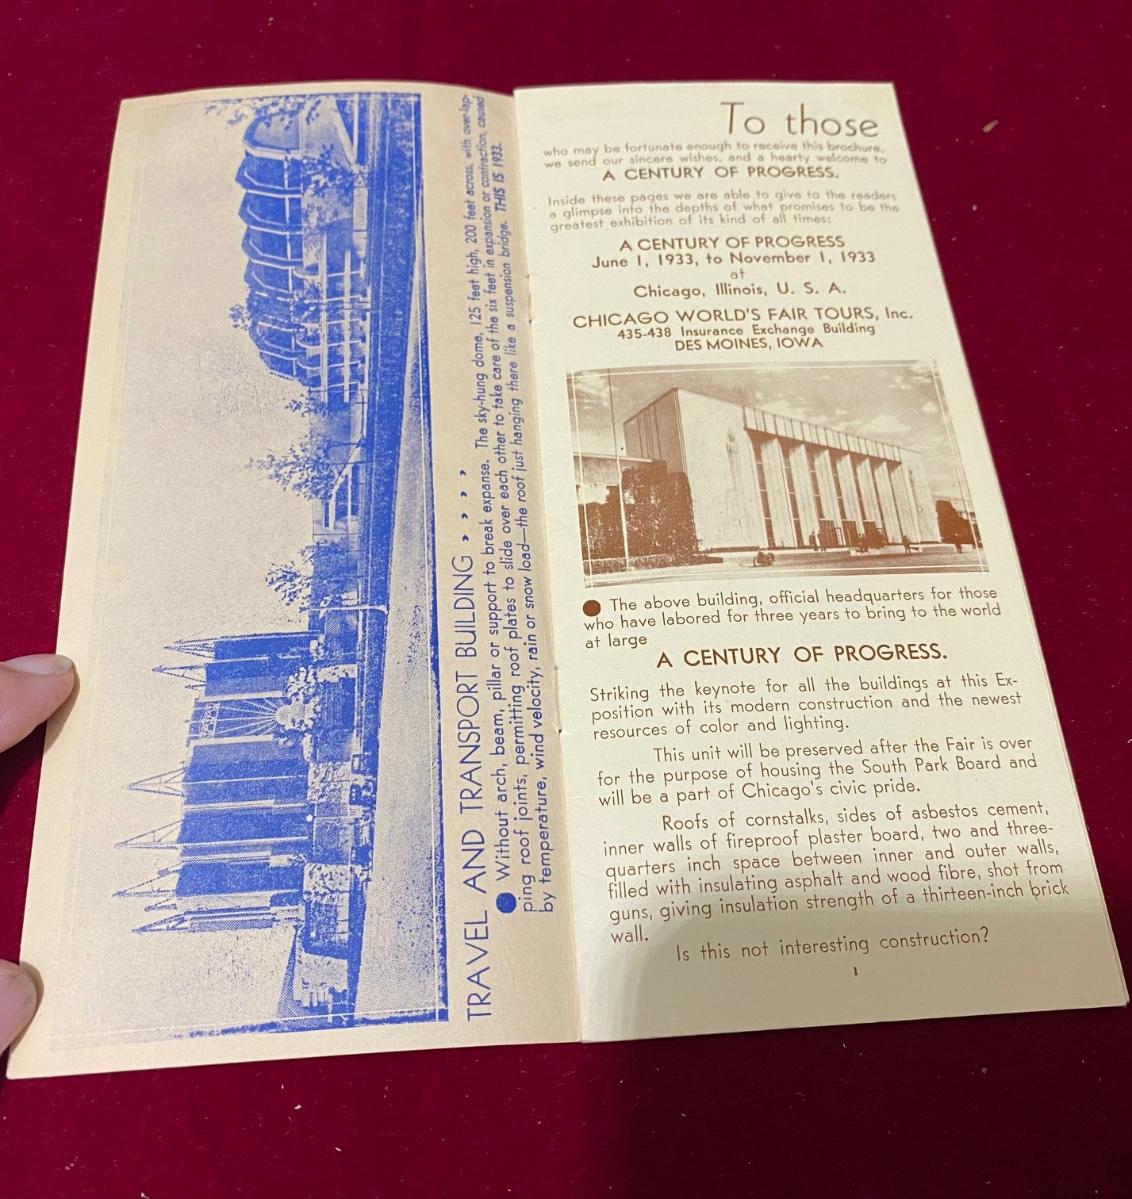 TRAVEL AND TRANSPORT BUILDING , , , ,
Without arch, beam, pillar or support to break expanse. The sky-hung dome, 125 feet high, 200 feet across, with overlap-
ping roof joints, permitting roof plates to slide over each other to take care of the six feet in expansion or contraction, caused
by temperature, wind velocity, rain or snow load—the roof just hanging there like a suspension bridge. THIS IS 1933.
To those
who may be fortunate enough to receive this brochure,
we send our sincere wishes, and a hearty welcome to
A CENTURY OF PROGRESS.
Inside these pages we are able to give to the readers
a glimpse into the depths of what promises to be the
greatest exhibition of its kind of all times:
A CENTURY OF PROGRESS
June 1, 1933, to November 1, 1933
at
Chicago, Illinois, U. S. A.
CHICAGO WORLD'S FAIR TOURS, Inc.
435-438 Insurance Exchange Building
DES MOINES, IOWA
The above building, official headquarters for those
who have labored for three years to bring to the world
at large
A CENTURY OF PROGRESS.
Striking the keynote for all the buildings at this Ex-
position with its modern construction and the newest
resources of color and lighting.
This unit will be preserved after the Fair is over
for the purpose of housing the South Park Board and
will be a part of Chicago's civic pride.
Roofs of cornstalks, sides of asbestos cement,
inner walls of fireproof plaster board, two and three-
quarters inch space between inner and outer walls,
filled with insulating asphalt and wood fibre, shot from
guns, giving insulation strength of a thirteen-inch brick
wall.
Is this not interesting construction?
1